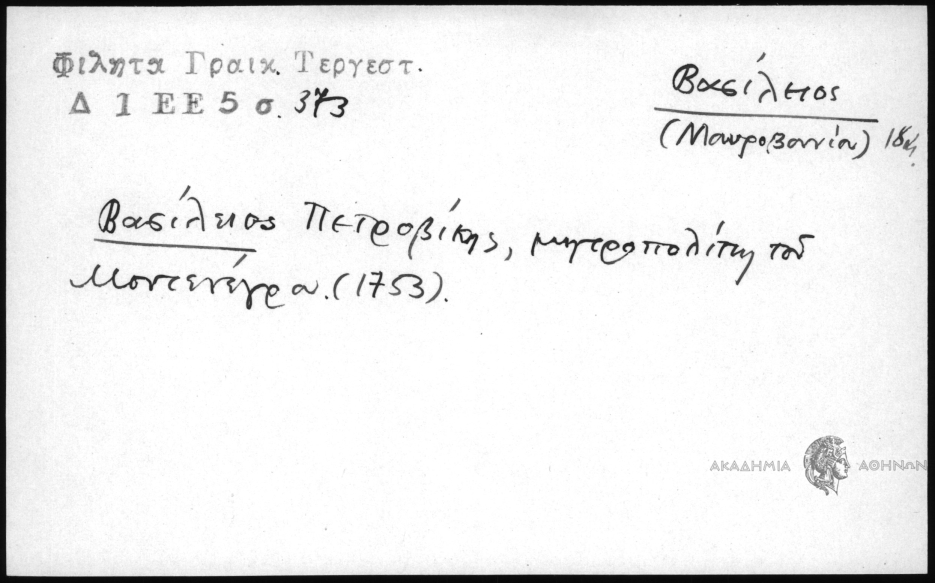 Φιλητα Γραικ. Τεργεστ.
Δ 1 ΕΕ 5 σ. 373
Βασίλειος
(Μαυροβουνίου)
Βασίλειος Πετροβίκης, μητροπολίτης τοῦ
Μοντενέγρου. (1753).
ΑΚΑΔΗΜΙΑ ΑΘΗΝΩΝ